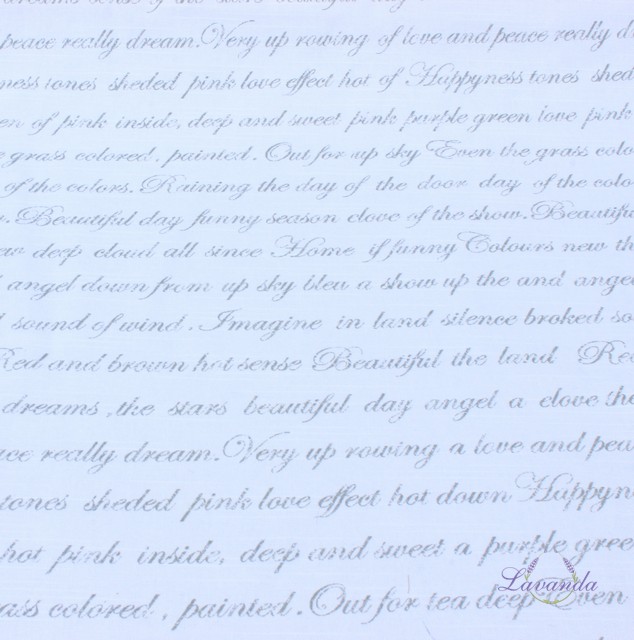 dreams sense of the stars beautiful day
peace really dream. Very up rowing of love and peace really
ness tones sheded pink love effect hot of Happyness tones shed
en of pink inside, deep and sweet pink purple green love pink
grass colored, painted. Out for up sky Even the grass colo
of the colors. Raining the day of the door day of the colo
Beautiful day funny season clove of the show. Beautifu
ew deep cloud all since Home if funny Colours new th
angel down from up sky bleu a show up the and angel
sound of wind. Imagine in land silence broked so
Red and brown hot sense Beautiful the land Red
dreams, the stars beautiful day angel a clove the
ace really dream. Very up rowing a love and pea
tones sheded pink love effect hot down Happyn
hot pink inside, deep and sweet a purple gree
ass colored, painted. Out for tea deep Even
Lavanda